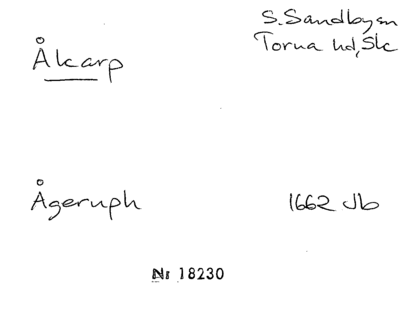 Ålcarp
S. Sandbysn
Torna hd, Skc
Ågeruph
1662 Jb
Nr 18230